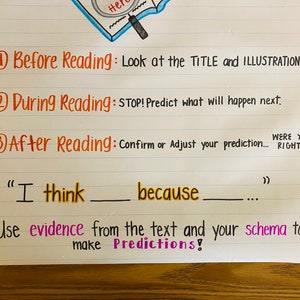 Here
1 Before Reading: Look at the TITLE and ILLUSTRATION
2 During Reading: STOP! Predict what will happen next.
3 After Reading: Confirm or Adjust your prediction... WERE
RIGHT
"I think ____ because ____..."
Use evidence from the text and your schema to
make Predictions!